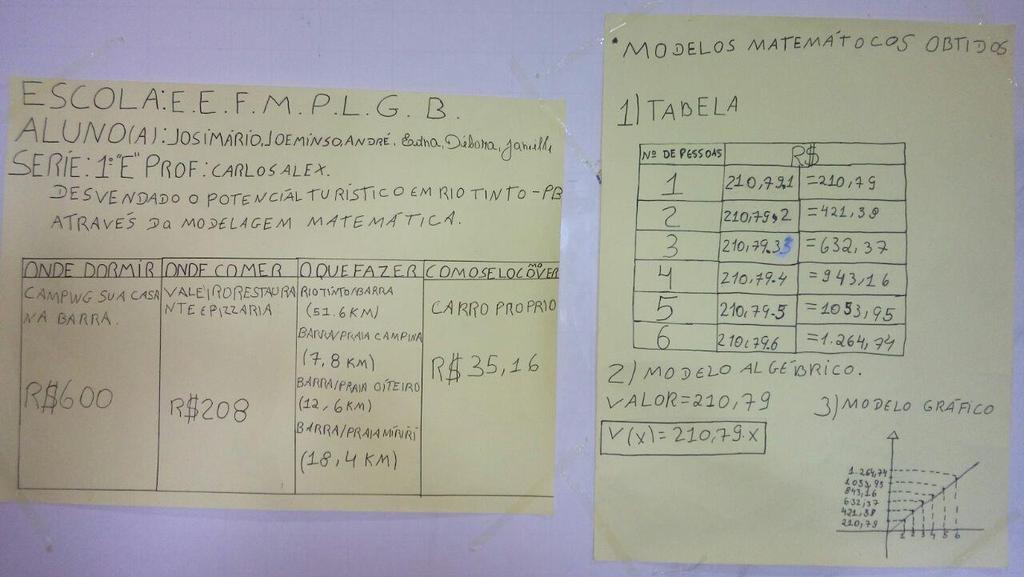 ESCOLA: E.E.F.M.P.L.G.B.
ALUNO(A): JOSIMÁRIO, JOEMINSO, ANDRÉ, Edna, Débora, Jamille
SERIE: 1º "E" PROF: CARLOS ALEX.
DESVENDADO O POTENCIAL TURÍSTICO EM RIO TINTO-PB
ATRAVÉS DA MODELAGEM MATEMÁTICA.
ONDE DORMIR
CAMPWG SUA CASA
NA BARRA.
R$600
ONDE COMER
VALEIRO RESTAURA
NTE E PIZZARIA
R$208
O QUE FAZER
RIO TINTO/BARRA
(51.6KM)
BARRA/PRAIA CAMPINA
(7,8 KM)
BARRA/PRAIA OITEIRO
(12,6KM)
BARRA/PRAIA MIRIRÍ
(18,4 KM)
COMO SE LOCOMOVER
CARRO PROPRIO
R$ 35,16
• MODELOS MATEMÁTOCOS OBTIDOS
1) TABELA
Nº DE PESSOAS R$
1 210,79.1 =210,79
2 210,79.2 =421,38
3 210,79.3 =632,37
4 210,79.4 =943,16
5 210,79.5 =1053,95
6 210,79.6 =1.264,74
2) MODELO ALGÉBRICO.
VALOR=210,79
V(x)=210,79.x
3) MODELO GRÁFICO
1.264,74
1053,95
843,16
632,37
421,38
210,79
1 2 3 4 5 6